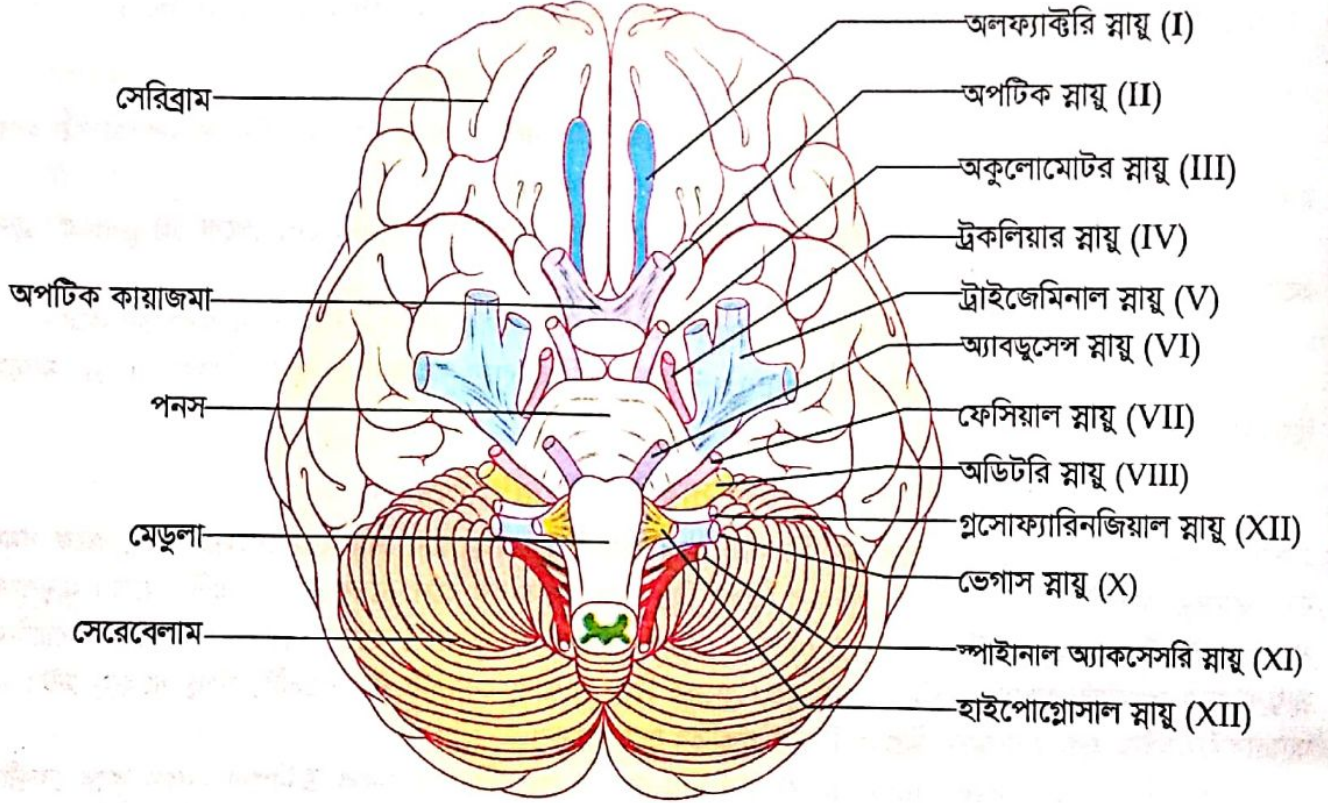 সেরিব্রাম
অপটিক কায়াজমা
পনস
মেডুলা
সেরেবেলাম
অলফ্যাক্টরি স্নায়ু (I)
অপটিক স্নায়ু (II)
অকুলোমোটর স্নায়ু (III)
ট্রকলিয়ার স্নায়ু (IV)
ট্রাইজেমিনাল স্নায়ু (V)
অ্যাবডুসেন্স স্নায়ু (VI)
ফেসিয়াল স্নায়ু (VII)
অডিটরি স্নায়ু (VIII)
গ্লসোফ্যারিনজিয়াল স্নায়ু (XII)
ভেগাস স্নায়ু (X)
স্পাইনাল অ্যাকসেসরি স্নায়ু (XI)
হাইপোগ্লোসাল স্নায়ু (XII)